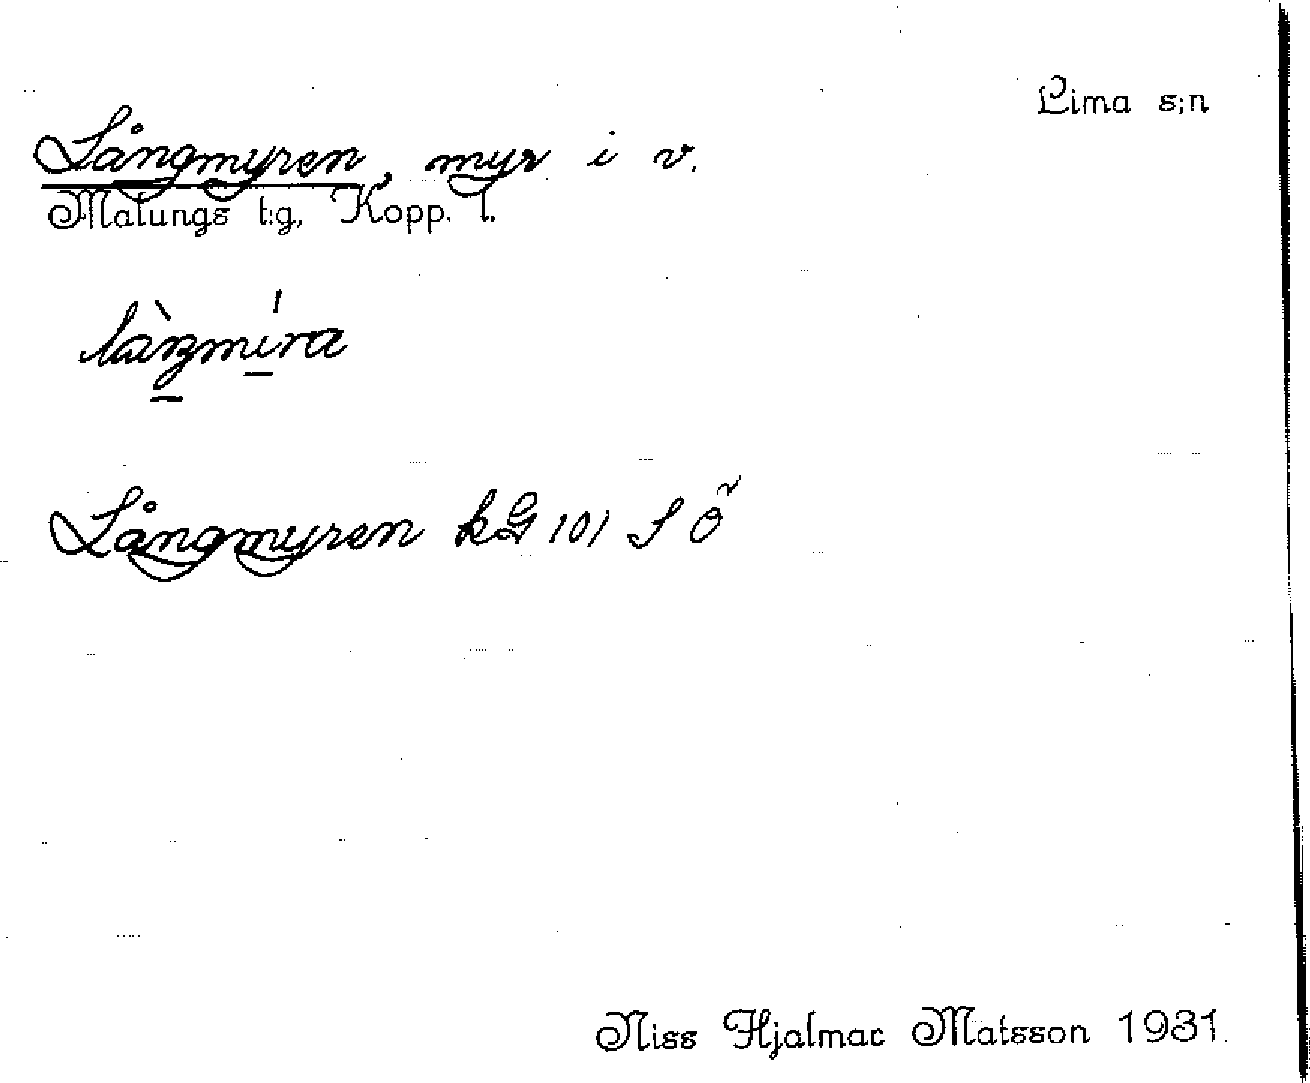 Lima s:n
Långmyren, myr i v.
Malungs t:g, Kopp. l.
Långmyren kG 101 S Ö
Niss Hjalmar Matsson 1931.